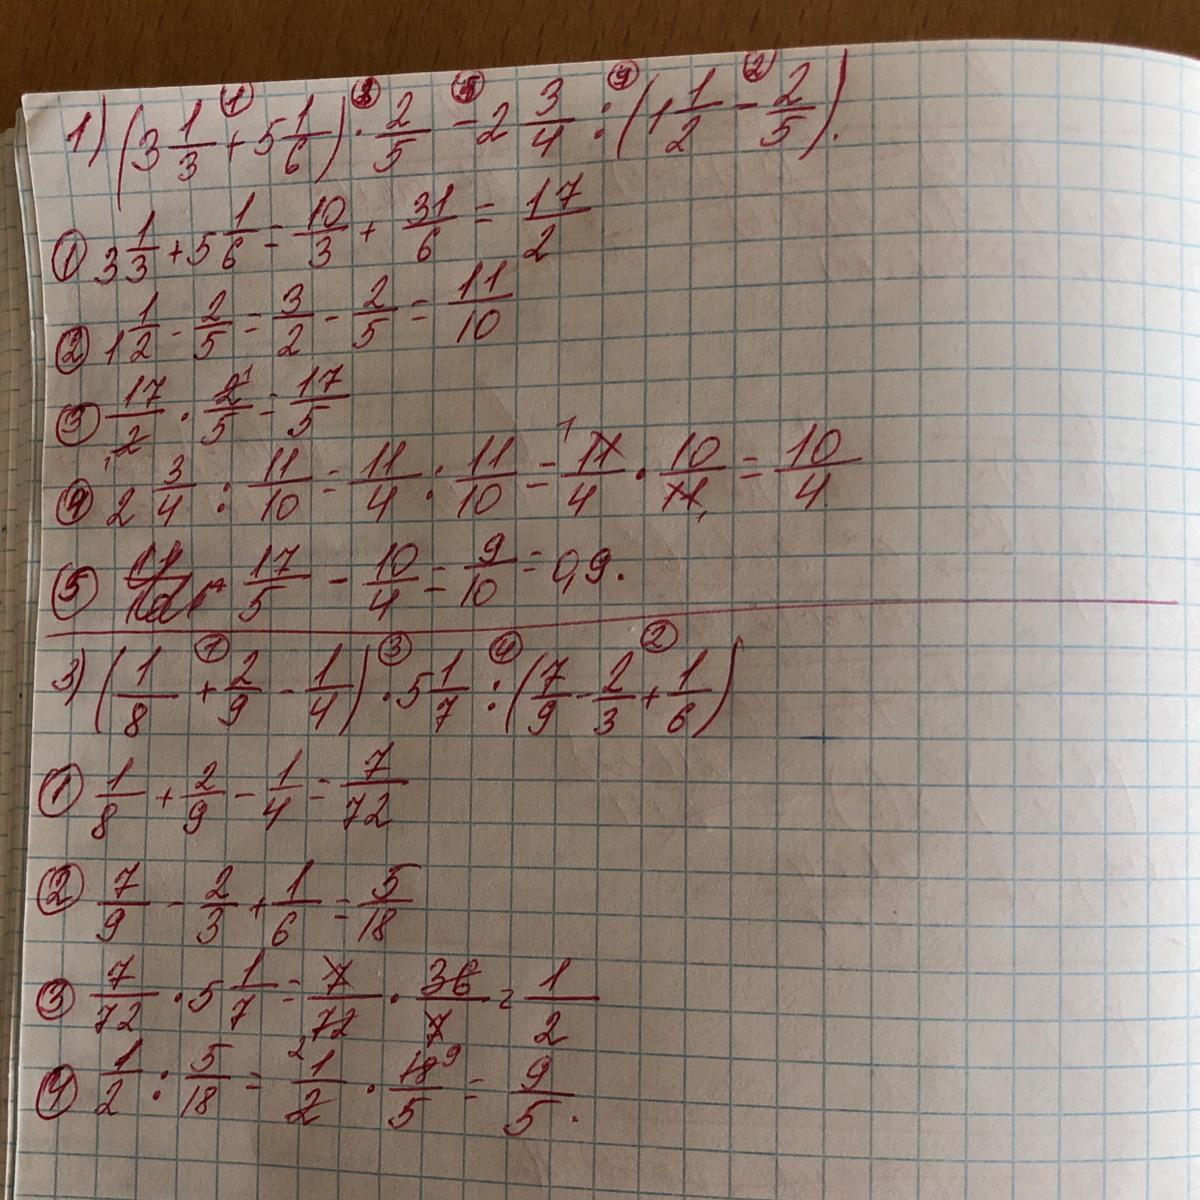 1) (3 1/3 + 5 1/6) · 2/5 - 2 3/4 : (1 1/2 - 2/5).
① 3 1/3 + 5 1/6 = 10/3 + 31/6 = 17/2
② 1 1/2 - 2/5 = 3/2 - 2/5 = 11/10
③ 17/2 · 2/5 = 17/5
④ 2 3/4 : 11/10 = 11/4 : 11/10 = 11/4 · 10/11 = 10/4
⑤ 17/5 - 10/4 = 9/10 = 0,9.
3) (1/8 + 2/9 - 1/4) · 5 1/7 : (7/9 - 2/3 + 1/6)
① 1/8 + 2/9 - 1/4 = 7/72
② 7/9 - 2/3 + 1/6 = 5/18
③ 7/72 · 5 1/7 = 7/72 · 36/7 = 1/2
④ 1/2 : 5/18 = 1/2 · 18/5 = 9/5.